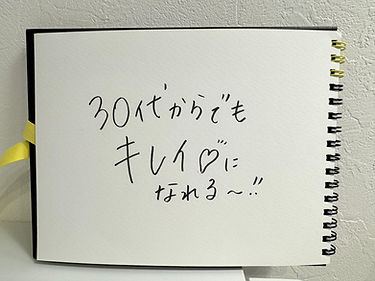 30代からでも
キレイ♡に
なれる〜!!